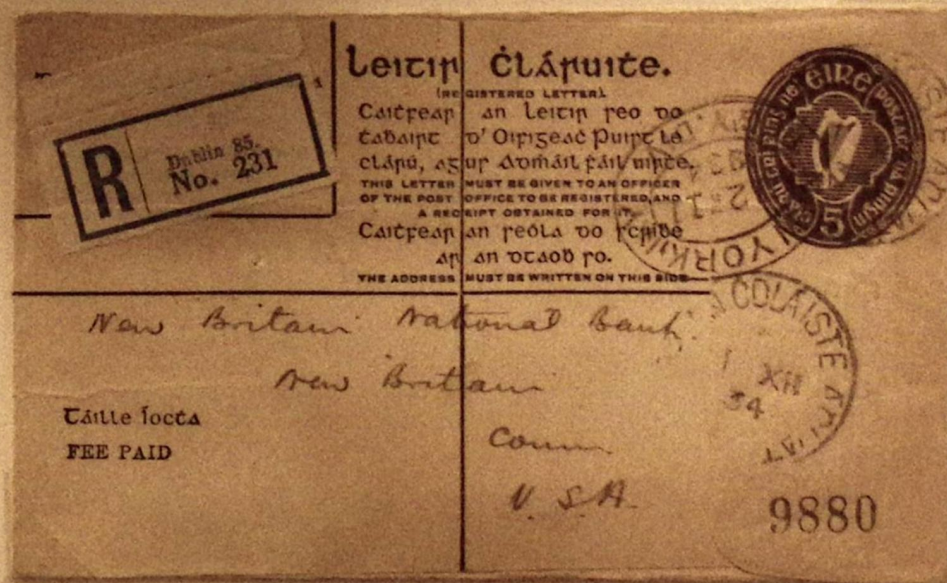 Leitir Ċláruiṫe.
(REGISTERED LETTER).
Caitfear an leitir seo do
ṫaḃairt d'Oifigeaċ Puirt le
clárú, agus Admháil fáil uirṫe.
THIS LETTER MUST BE GIVEN TO AN OFFICER
OF THE POST OFFICE TO BE REGISTERED, AND
A RECEIPT OBTAINED FOR IT.
Caitfear an seóla do scríḃe
ar an dtaoḃ so.
THE ADDRESS MUST BE WRITTEN ON THIS SIDE
R
Dublin 85.
No. 231
éire
postage
5
YORK
COLAISTE
1 XII
34
New Britain National Bank
New Britain
Conn
U.S.A.
Táille íocṫa
FEE PAID
9880